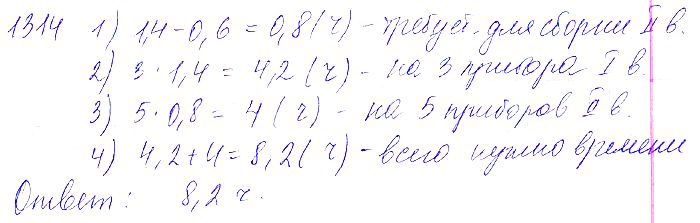 1314 1) 1,4-0,6 = 0,8 (ч) - требует. для сборки II в.
2) 3 · 1,4 = 4,2 (ч) - на 3 прибора I в.
3) 5 · 0,8 = 4 (ч) - на 5 приборов II в.
4) 4,2+4 = 8,2 (ч) - всего нужно времени
Ответ: 8,2 ч.